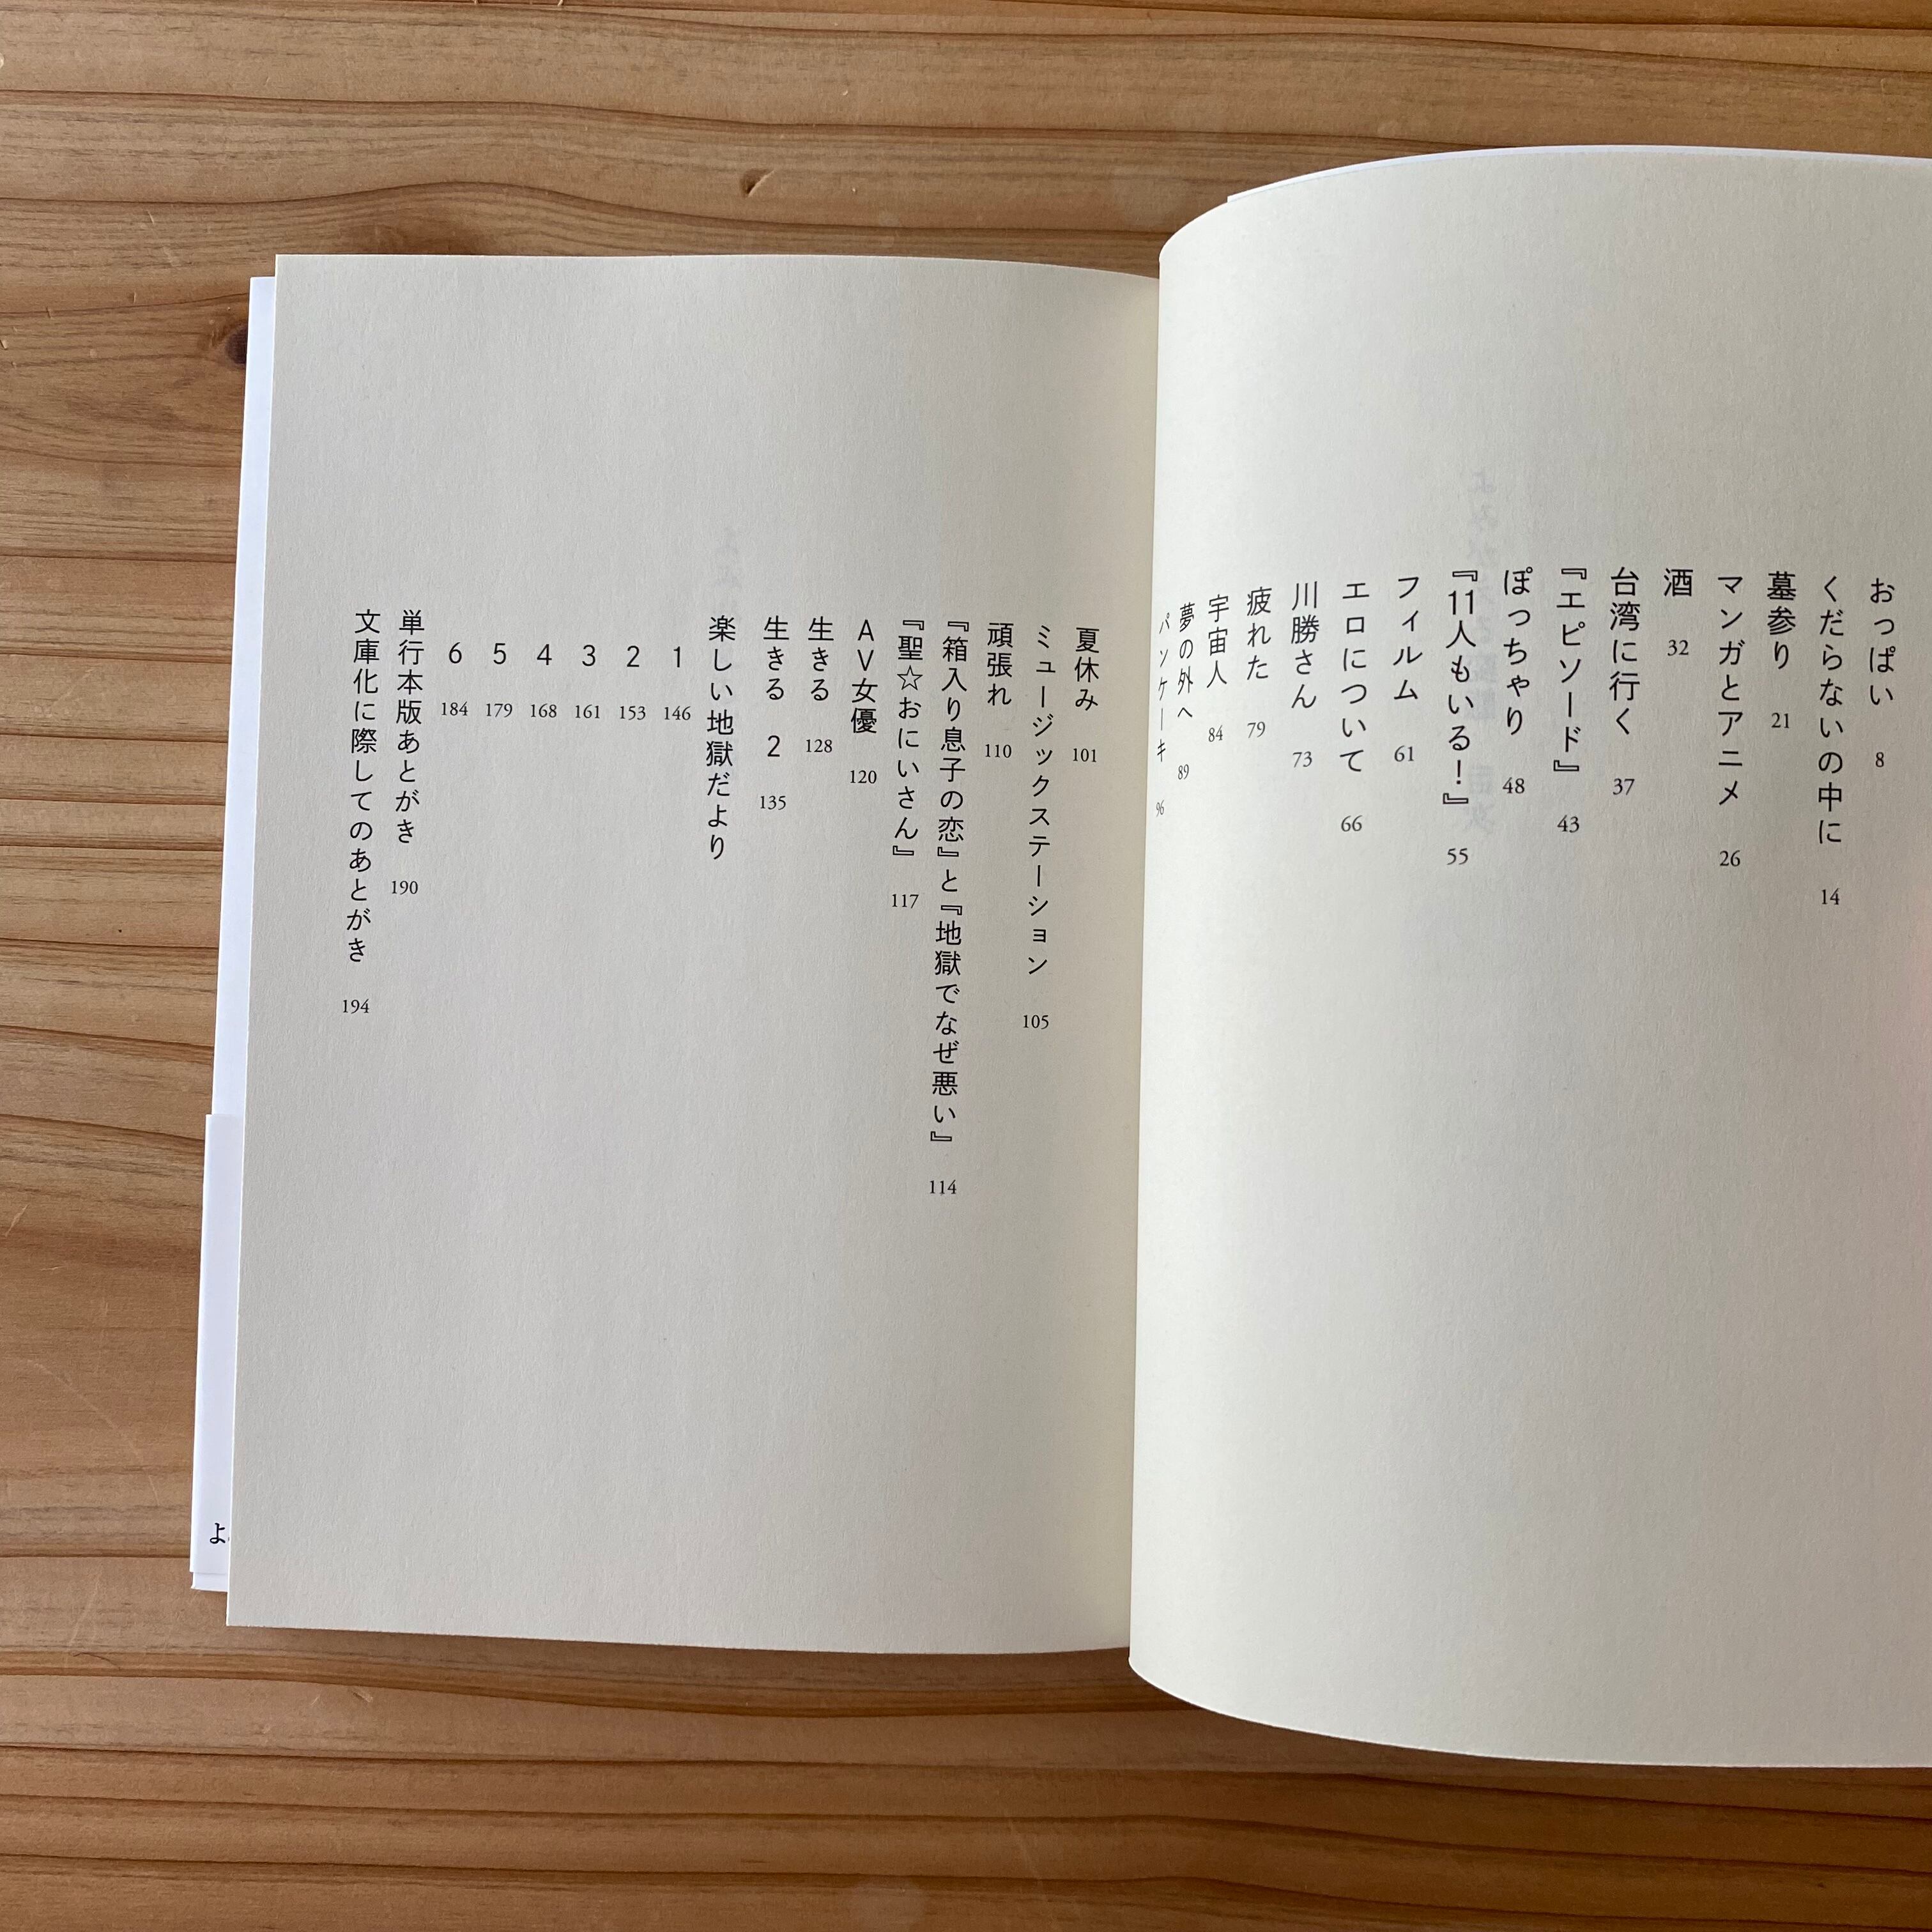 おっぱい 8
くだらないの中に 14
墓参り 21
マンガとアニメ 26
酒 32
台湾に行く 37
『エピソード』 43
ぽっちゃり 48
『11人もいる！』 55
フィルム 61
エロについて 66
川勝さん 73
疲れた 79
宇宙人 84
夢の外へ 89
パンケーキ 96
夏休み 101
ミュージックステーション 105
頑張れ 110
『箱入り息子の恋』と『地獄でなぜ悪い』 114
『聖☆おにいさん』 117
AV女優 120
生きる 128
生きる 2 135
楽しい地獄だより
1 146
2 153
3 161
4 168
5 179
6 184
単行本版あとがき 190
文庫化に際してのあとがき 194